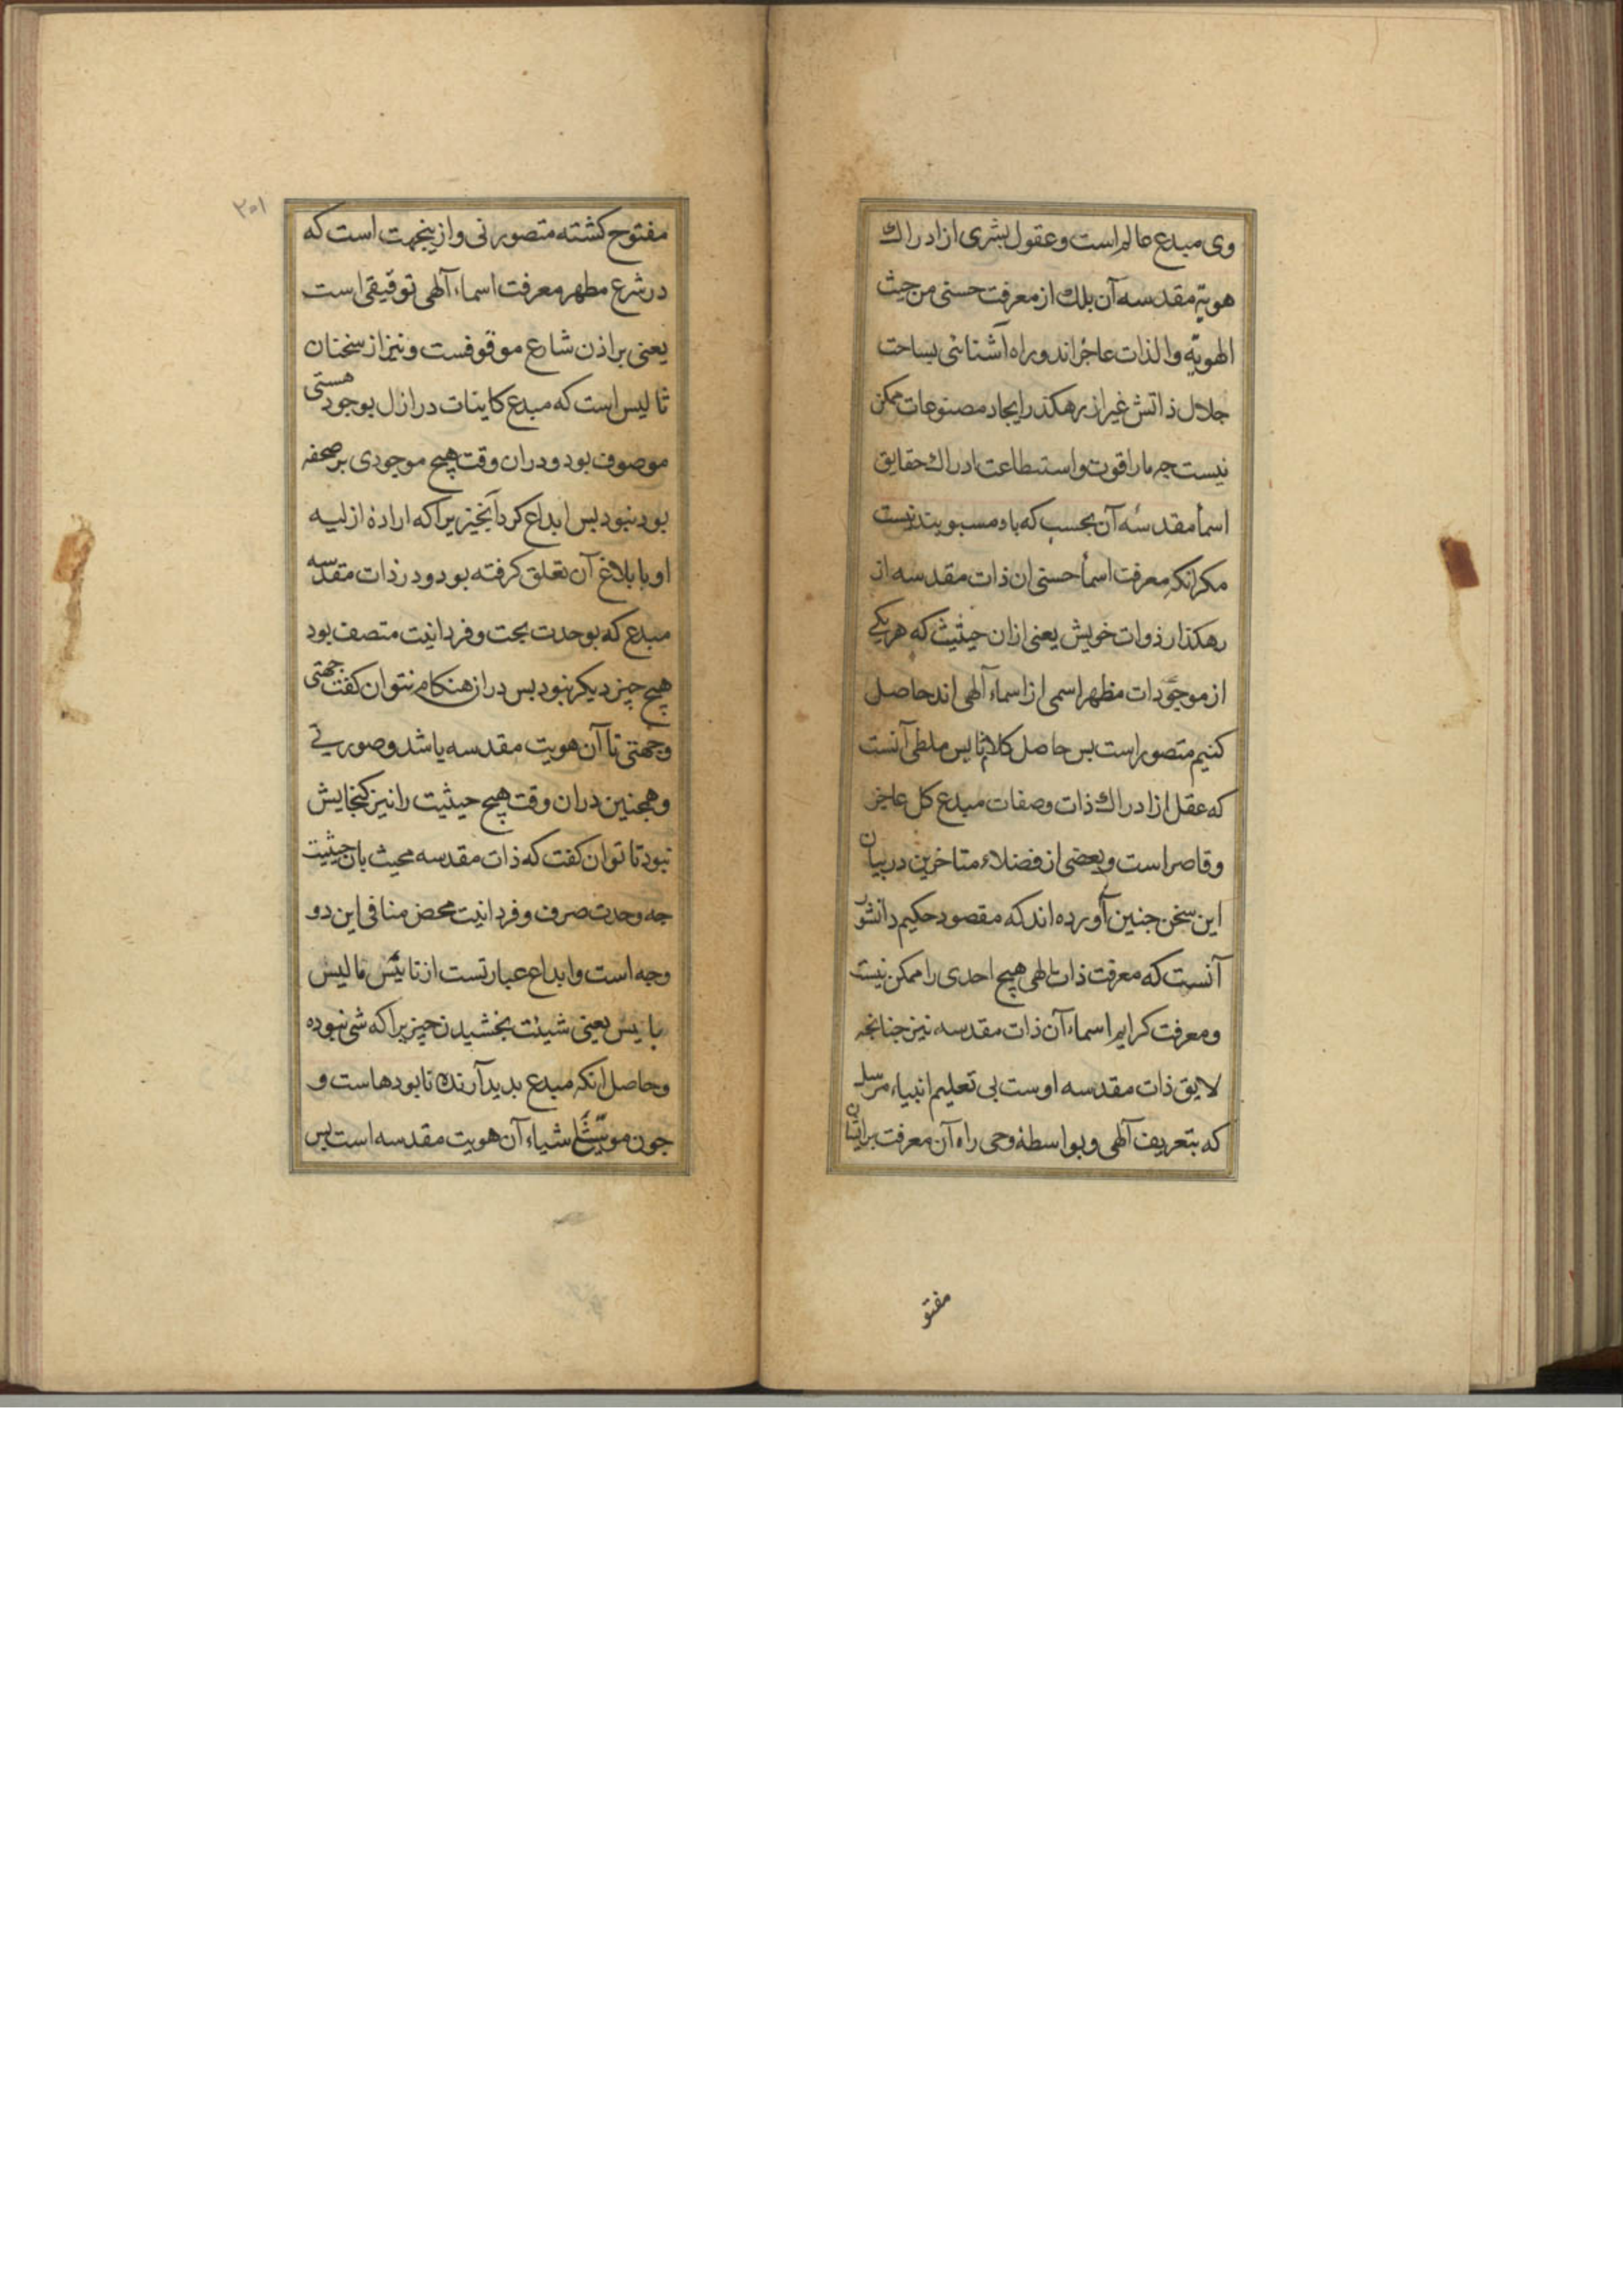 وی مبدع عالم است و عقول بشری از ادراك
هویة مقدسه آن بلك از معرفت حسنی من حیث
الهویّه والذات عاجز اند و راه آشنائی بساحت
جلال ذاتش غیر از رهكذر ایجاد مصنوعات ممكن
نیست چه ما را قوت و استطاعت ادراك حقایق
اسمأ مقدسهٔ آن بحسب كه باو منسوبند نیست
مكر انكه معرفت اسمأ حسنی ان ذات مقدسه از
رهكذار ذوات خویش یعنی ازان حیثیث كه هر یكی
از موجوّدات مظهر اسمی از اسماء آلهی اند حاصل
كنیم متصور است بس حاصل كلام ثالیس ملطی آنست
كه عقل از ادراك ذات و صفات مبدع كل عاجز
و قاصر است و بعضی از فضلاء متاخرین در بیان
این سخن جنین آورده اند كه مقصود حكیم دانشور
آنست كه معرفت ذات الهی هیچ احدی را ممكن نیست
و معرفت كرایم اسماء آن ذات مقدسه نیز جنانچه
لایق ذات مقدسه اوست بی تعلیم انبیاء مرسل
كه بتعریف آلهی و بواسطهٔ وحی راه آن معرفت بر ایشان
مفتو
۳۰۱
مفتوح كشته متصور نی و ازینجهت است كه
در شرع مطهر معرفت اسماء آلهی توقیقی است
یعنی بر اذن شارع موقوفست و نیز از سخنان
ثالیس است كه مبدع كاینات در ازل بوجود هستی
موصوف بود و دران وقت هیچ موجودی بر صحفه
بود نبود بس ابداع كرد آنچیزیرا كه ارادهٔ ازلیه
او با بلاغ آن تعلق كرفته بود و در ذات مقدسه
مبدع كه بوحدت بحت و فردانیت متصف بود
هیچ چیز دیكر نبود بس در از هنكام نتوان كفت جهتی
وجهتی تا آن هویت مقدسه یا شد و صورتی
و همجنین دران وقت هیچ حیثیت را نیز كنجایش
نبود تا توان كفت كه ذات مقدسه محیث بان حیثیت
جه وحدت صرف و فردانیت محض منافی این دو
وجه است و ابداع عبارتست از تأییس ما لیس
بایس یعنی شیئت بخشیدن چیزیرا كه شی نبوده
و حاصل انكه مبدع بدید آرنده نابودهاست و
جون مویّسّ اشیاء آن هویت مقدسه است بس